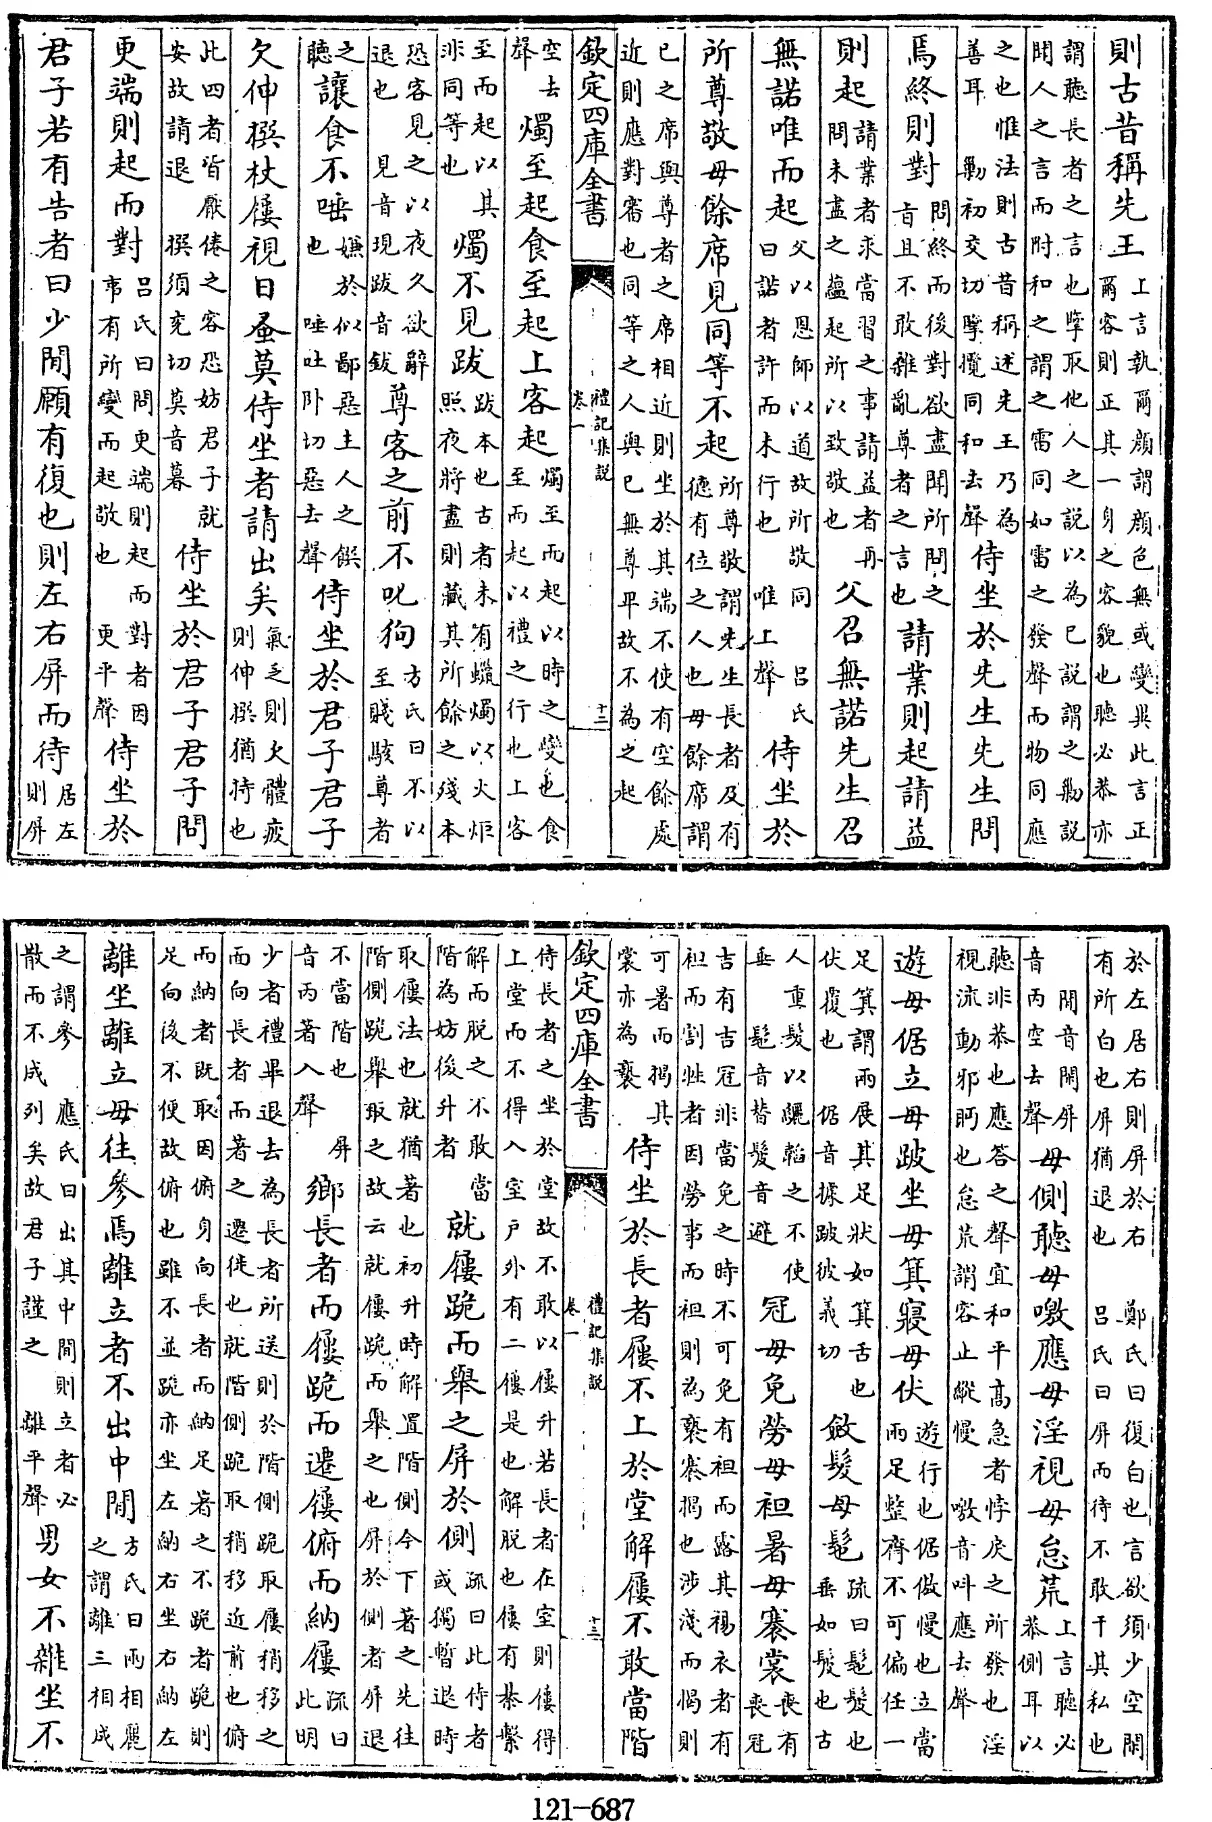 則古昔稱先王上言執爾顏謂顏色無或變異此言正爾容則正其一身之容貌也聽必恭亦
謂聽長者之言也擥取他人之說以為己說謂之勦說聞人之言而附和之謂之雷同如雷之發聲而物同應
之也惟法則古昔稱述先王乃為善耳 勦初交切擥攬同和去聲侍坐於先生先生問
焉終則對問終而後對欲盡聞所問之㫖且不敢雜亂尊者之言也請業則起請益
則起請業者求當習之事請益者再問未盡之蘊起所以致敬也父召無諾先生召
無諾唯而起父以恩師以道故所敬同 吕氏曰諾者許而未行也 唯上聲侍坐於
所尊敬毋餘席見同等不起所尊敬謂先生長者及有德有位之人也毋餘席謂
己之席與尊者之席相近則坐於其端不使有空餘處近則應對審也同等之人與己無尊卑故不為之起
欽定四庫全書 禮記集說 卷一 十二
空去聲燭至起食至起上客起燭至而起以時之變也食至而起以禮之行也上客
至而起以其非同等也燭不見跋跋本也古者未有蠟燭以火炬照夜將盡則藏其所餘之殘本
恐客見之以夜久欲辭退也 見音現跋音鈸尊客之前不叱狗方氏曰不以至賤駭尊者
之聽讓食不唾嫌於似鄙惡主人之饌也 唾吐卧切惡去聲侍坐於君子君子
欠伸撰杖屨視日蚤莫侍坐者請出矣氣乏則欠體疲則伸撰猶持也
此四者皆厭倦之容恐妨君子就安故請退 撰須兖切莫音暮侍坐於君子君子問
更端則起而對吕氏曰問更端則起而對者因事有所變而起敬也 更平聲侍坐於
君子若有告者曰少閒願有復也則左右屏而待居左則屏
於左居右則屏於右 鄭氏曰復白也言欲須少空閒有所白也屏猶退也 吕氏曰屏而待不敢干其私也
閒音閑屏音丙空去聲毋側聽毋噭應毋淫視毋怠荒上言聽必恭側耳以
聽非恭也應答之聲宜和平高急者悖戾之所發也淫視流動邪眄也怠荒謂容止縱慢 噭音叫應去聲
遊毋倨立毋跛坐毋箕寢毋伏遊行也倨傲慢也立當兩足整齊不可偏任一
足箕謂兩展其足狀如箕舌也伏覆也 倨音據跛彼義切斂髮毋髢疏曰髢髲也垂如髲也古
人重髮以纚韜之不使垂 髢音替髲音避冠毋免勞毋袒暑毋褰裳喪有喪冠
吉有吉冠非當免之時不可免有袒而露其裼衣者有袒而割牲者因勞事而袒則為褻褰揭也涉淺而揭則
可暑而揭其裳亦為褻侍坐於長者屨不上於堂解屨不敢當階
欽定四庫全書 禮記集說 卷一 十三
侍長者之坐於堂故不敢以屨升若長者在室則屨得上堂而不得入室戶外有二屨是也解脫也屨有綦繫
解而脫之不敢當階為妨後升者就屨跪而舉之屏於側疏曰此侍者或獨暫退時
取屨法也就猶著也初升時解置階側今下著之先往階側跪舉取之故云就屨跪而舉之也屏於側者屏退
不當階也 屏音丙著入聲鄉長者而屨跪而遷屨俯而納屨疏曰此明
少者禮畢退去為長者所送則於階側跪取屨稍移之而向長者而著之遷徙也就階側跪取稍移近前也俯
而納者既取因俯身向長者而納足著之不跪者跪則足向後不便故俯也雖不並跪亦坐左納右坐右納左
離坐離立毋往參焉離立者不出中間方氏曰兩相麗之謂離三相成
之謂參 應氏曰出其中間則立者必散而不成列矣故君子謹之 離平聲男女不雜坐不
121-687